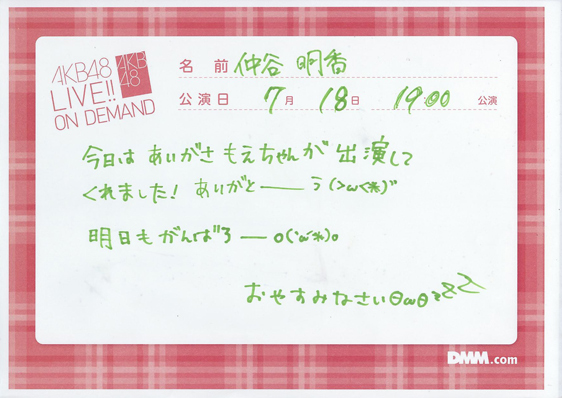 AKB48
LIVE!!
ON DEMAND
AKB
48
名前 仲谷明香
公演日 7月 18日 19:00 公演
今日は あいがさ もえちゃんが 出演して
くれました! ありがと——う(>ω<*)"
明日もがんばろ—o(・ω・*)o
おやすみなさいΘωΘzzZ
DMM.com